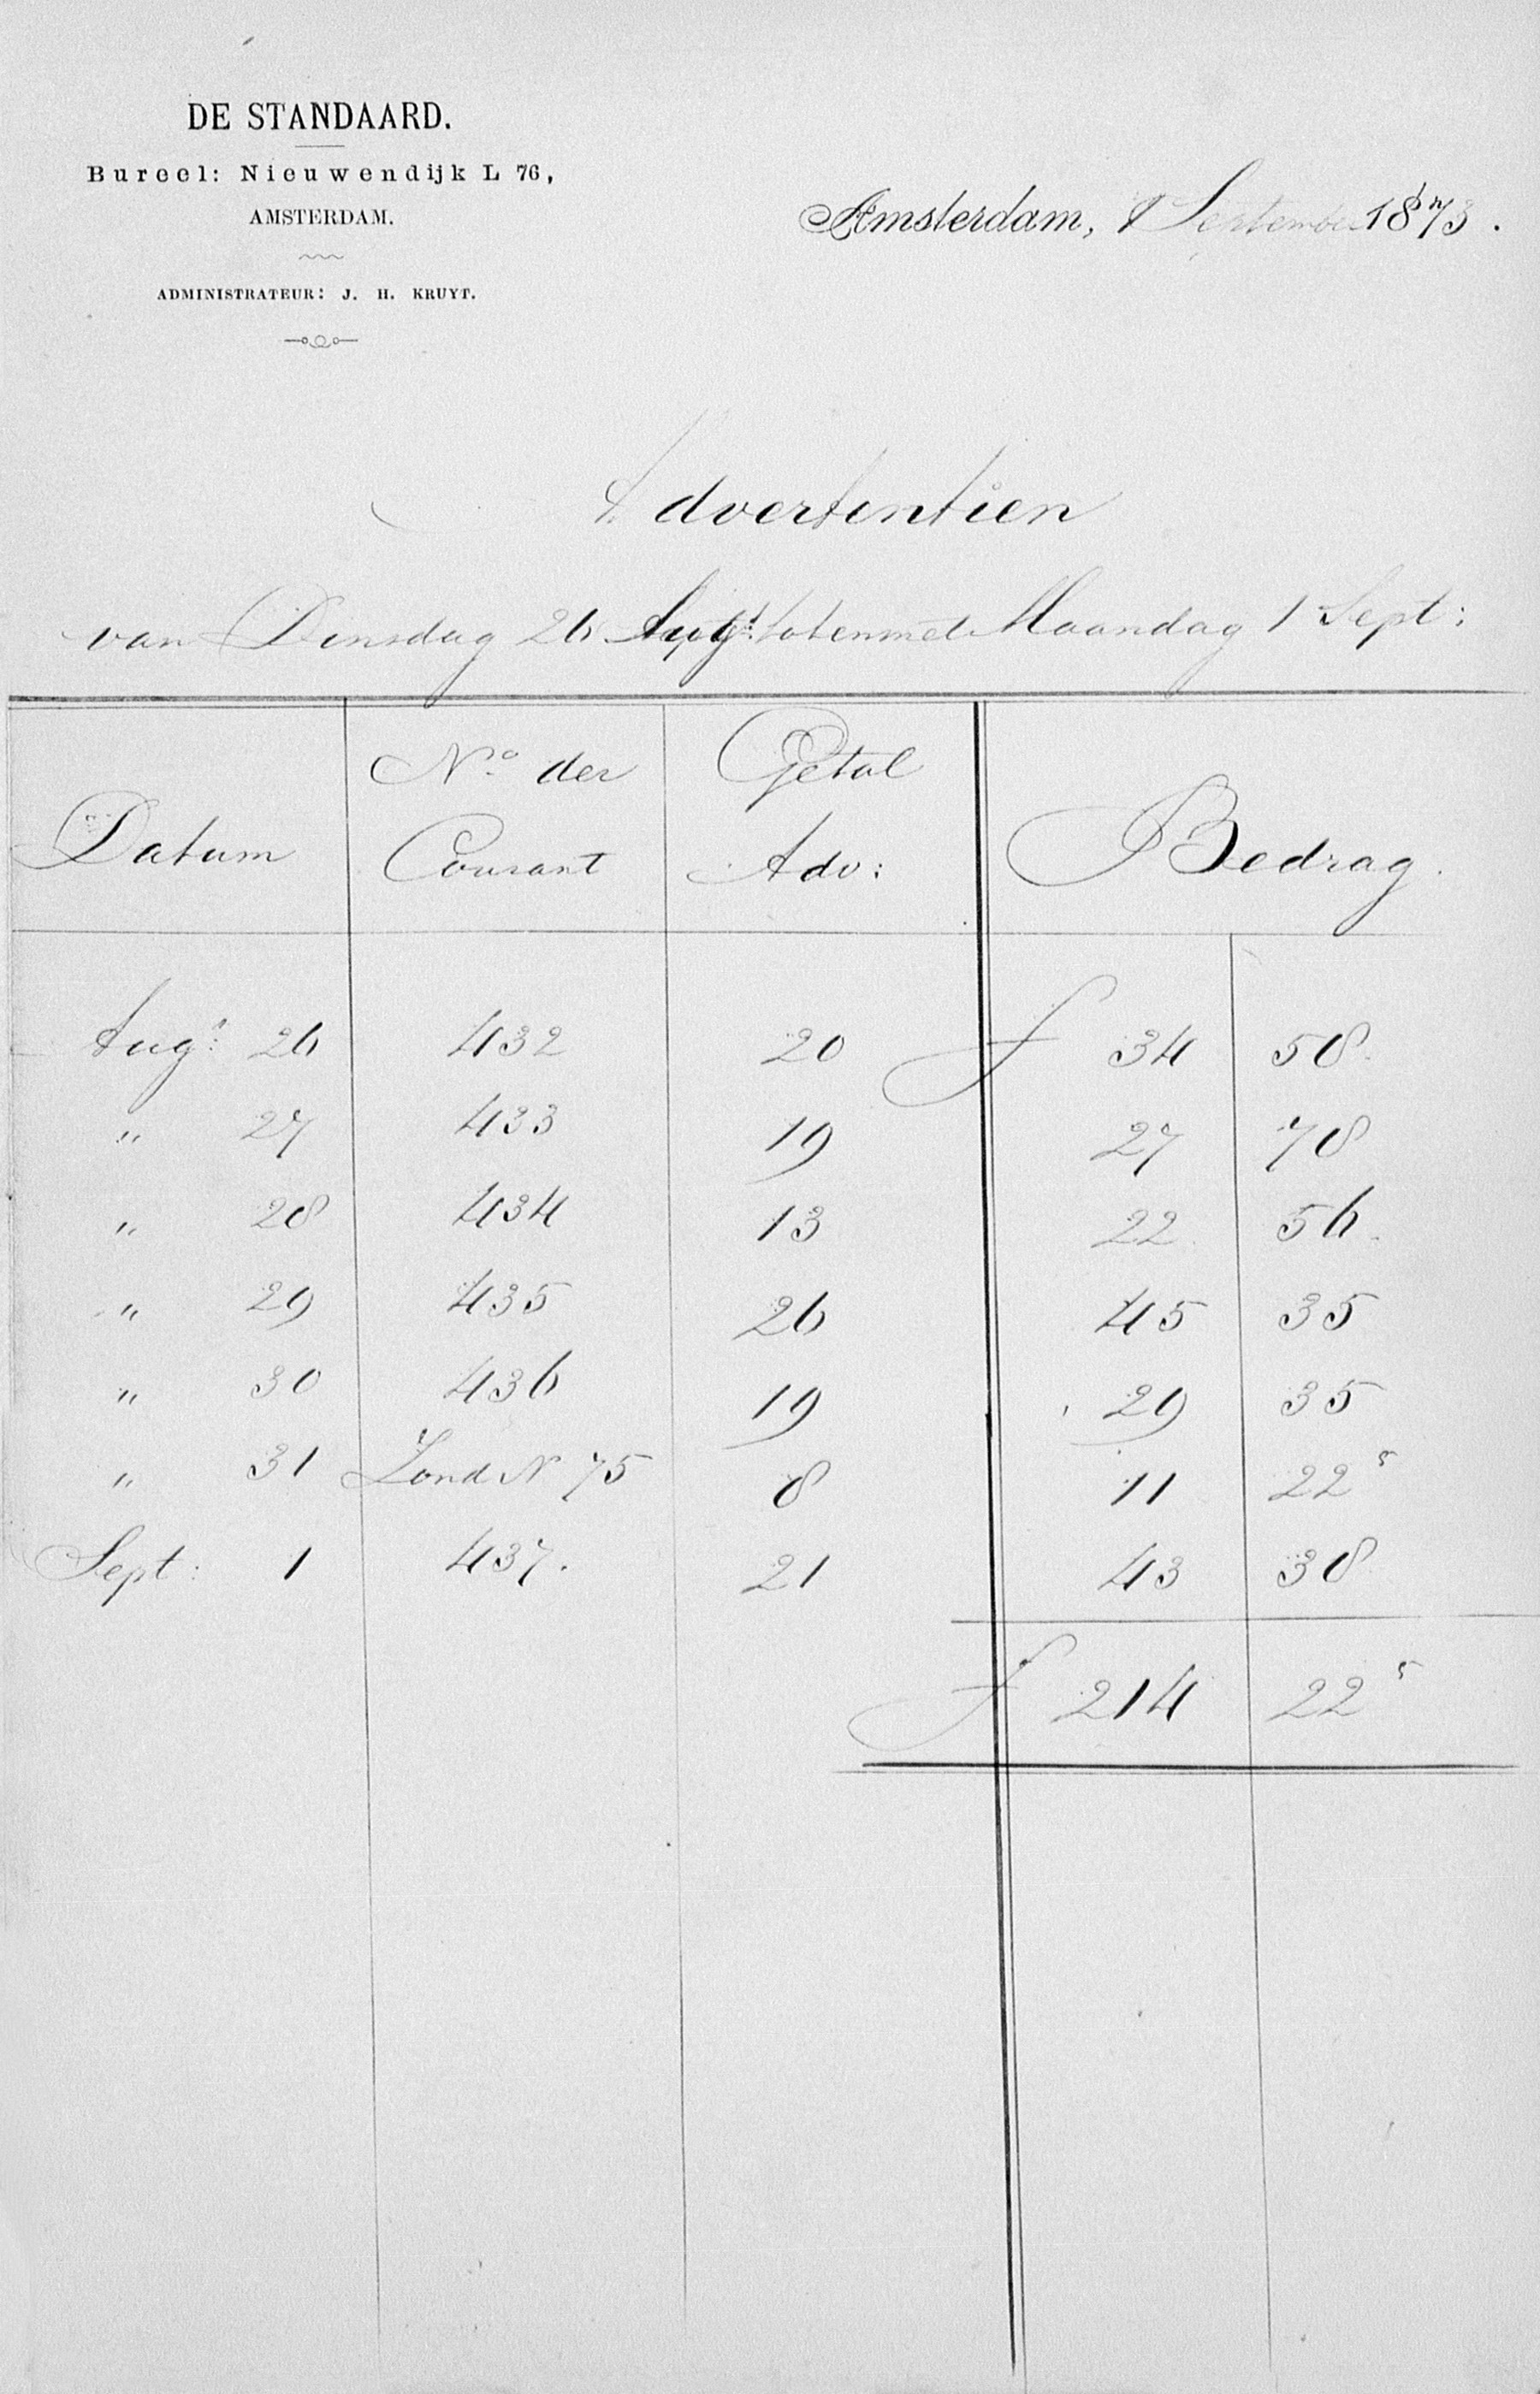 DE STANDAARD.
Bureel: Nieuwendijk L 76,
AMSTERDAM.
ADMINISTRATEUR: J. H. KRUYT.
Amsterdam, September 1873.
Advertentien
van Dinsdag 26 Augt. totenmet Maandag 1 Sept:
Datum No. der Courant Getal Adv: Bedrag.
Augt: 26 432 20 f 34 58.
" 27 433 19 27 78
" 28 434 13 22. 56.
" 29 435 26 45 35
" 30 436 19 29 35
" 31 Zond N 75 8 11 22⁵
Sept: 1 437. 21 43 38
f 214 22⁵